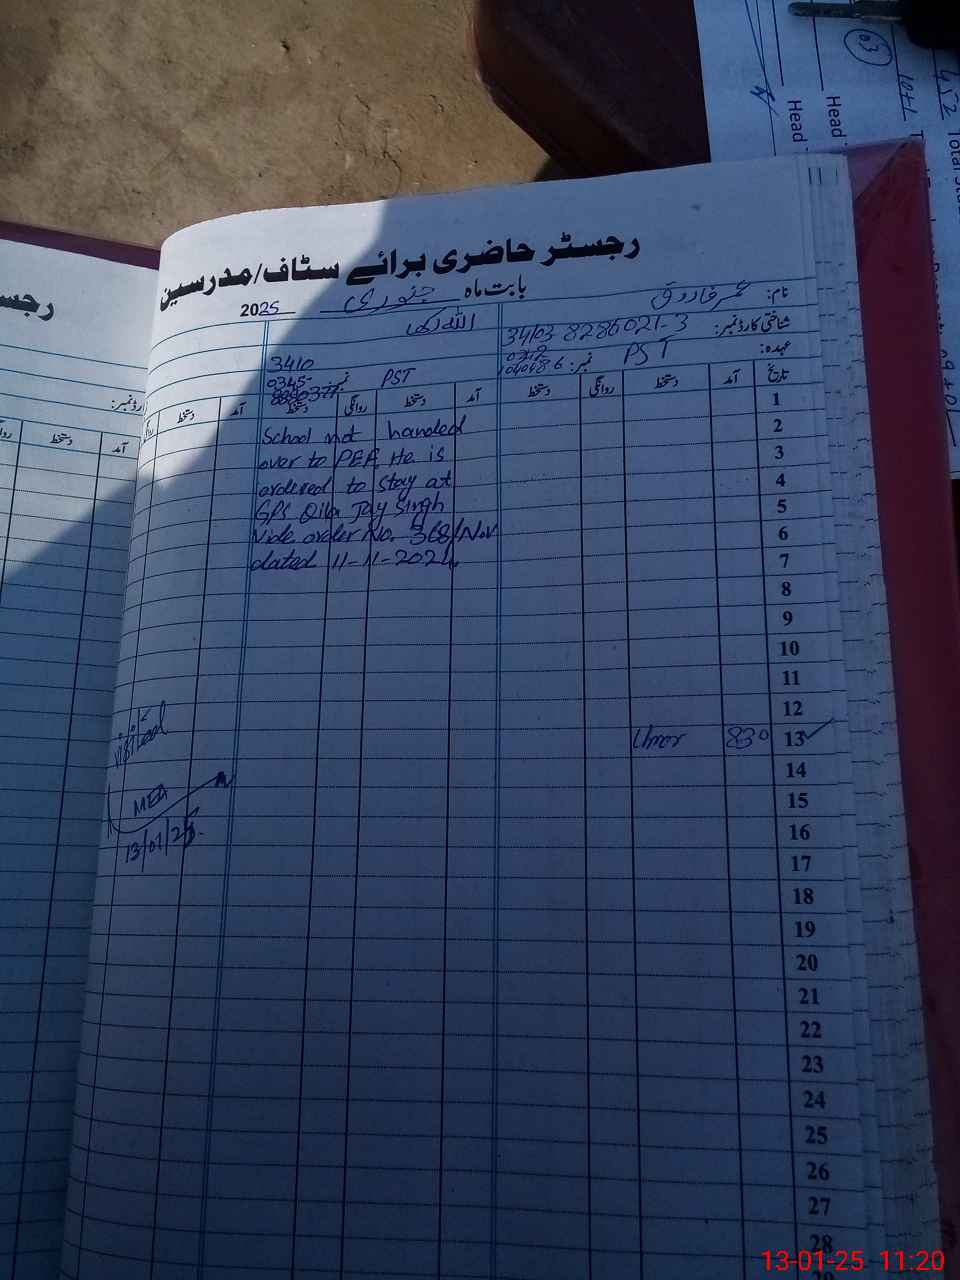 رجسٹر حاضری برائے سٹاف/مدرسین
بابت ماہ جنوری 2025
نام: عمر فاروق
شناختی کارڈ نمبر: 34103-8286021-3
عہدہ: PST نمبر:
اللہ رکھا
3410
0345-
نمبر: PST
تاریخ آمد دستخط روانگی دستخط آمد دستخط روانگی دستخط آمد دستخط
1
School not handed
2
over to PEF, He is
3
ordered to stay at
4
GPS Qila Jay Singh
5
Vide order No. 368/Nov
6
dated 11-11-2024.
7
8
9
10
11
12
13 830 Umer
14
15
16
17
18
19
20
21
22
23
24
25
26
27
28
Visited
MEA
13/01/25.
رجس
ارڈ نمبر:
آمد دستخط
03
1041
452
Head
Head
Total
13-01-25 11:20